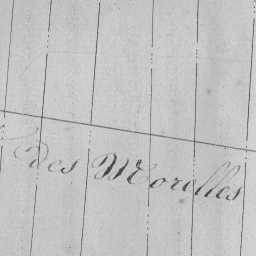 des Morelles